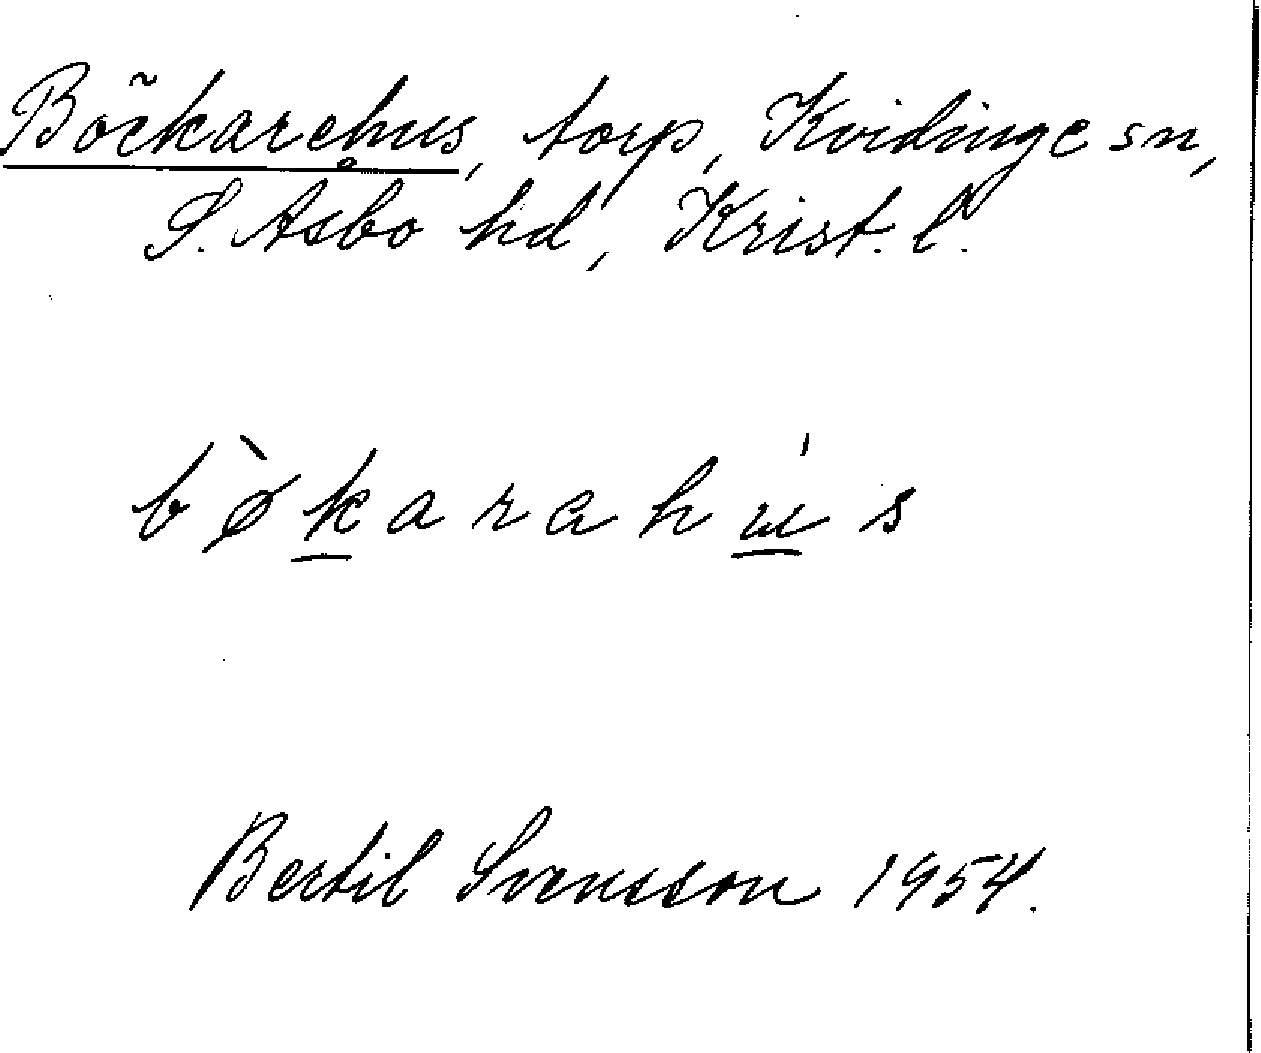 Böckarehus, torp, Kvidinge sn,
S. Åsbo hd, Krist. l.
bø̀karahu̍s
Bertil Svensson 1954.